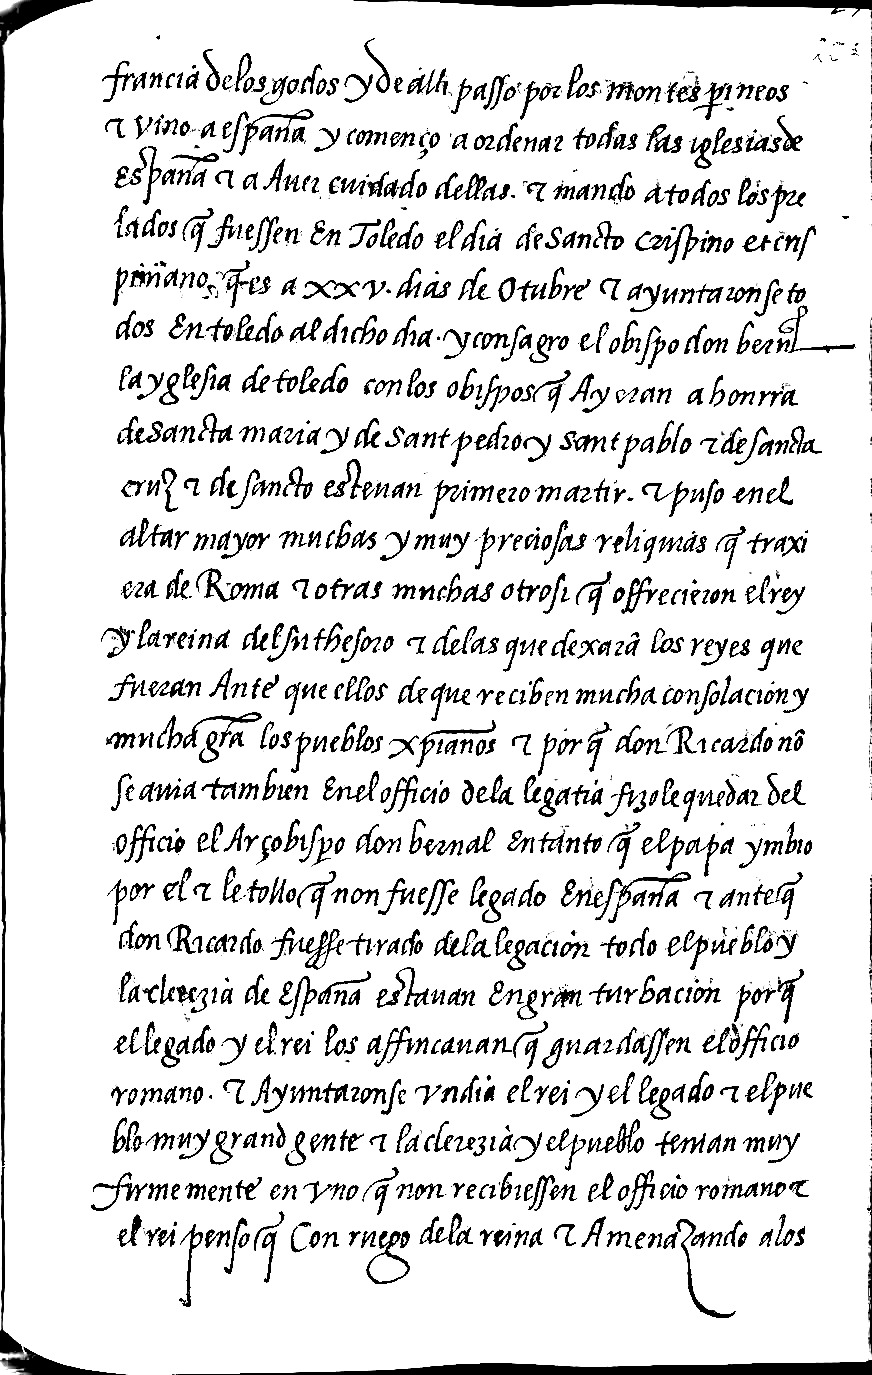 francia delos godos y de alli passo por los montes pineos
τ vino a españa y començo a ordenar todas las iglesias de
España τ a Aver cuidado dellas. τ mando a todos los pre
lados q̃ fuessen En Toledo el dia de Sancto Crispino et cris
piniano, q̃ es a xxv. dias de Otubre τ ayuntaronse to
dos En toledo al dicho dia. y consagro el obispo don bernl
la yglesia de toledo con los obispos q̃ Ay eran a honrra
de Sancta maria y de Sant pedro y Sant pablo τ de sancta
cruz τ de sancto estevan primero martir. τ puso enel
altar mayor muchas y muy preciosas reliquias q̃ traxi
era de Roma τ otras muchas otrosi q̃ offrecieron el rey
y la reina del su thesoro τ delas que dexarã los reyes que
fueran Ante que ellos de que reciben mucha consolacion y
mucha gr̃a los pueblos xpianos τ por q̃ don Ricardo nõ
se avia tambien Enel officio dela legatia fizole quedar del
officio el Arçobispo don bernal Entanto q̃ el papa ymbio
por el τ le tollo q̃ non fuesse legado En españa τ ante q̃
don Ricardo fuesse tirado dela legacion todo el pueblo y
la clerezia de España estavan En gran turbacion por q̃
el legado y el rei los affincavan q̃ guardassen el officio
romano. τ Ayuntaronse un dia el rei y el legado τ el pue
blo muy grand gente τ la clerezia y el pueblo tenian muy
firme mente en uno q̃ non recibiessen el officio romano τ
el rei penso q̃ Con ruego dela reina τ Amenazando a los